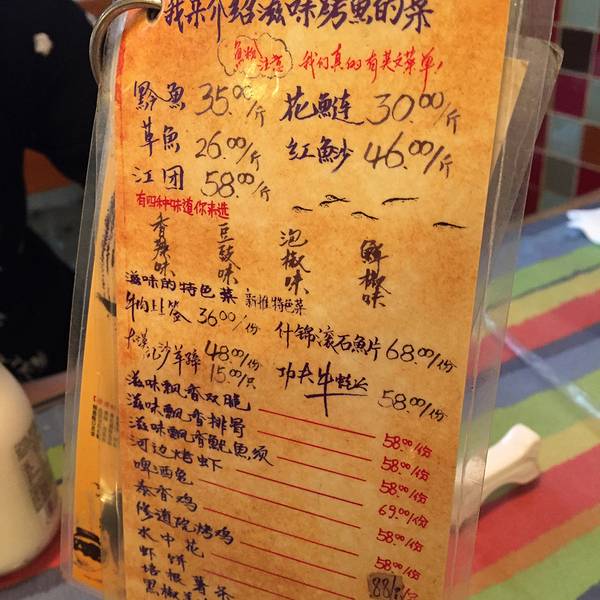 我来介绍滋味烤魚的菜
注意
我们真的有英文菜单!
黔魚 35.00/斤 花鲢 30.00/斤
草魚 26.00/斤 红魦 46.00/斤
江团 58.00/斤
有四种味道你来选
香辣味 豆豉味 泡椒味 鲜椒味
滋味的特色菜 新推特色菜
牛肉上上签 36.00/份 什锦滚石魚片 68.00/份
48.00/份
15.00/只 功夫牛蛙 58.00/份
滋味飘香双脆 58.00/份
滋味飘香排骨 58.00/份
滋味飘香鱿魚须 58.00/份
河边烤虾 69.00/份
啤酒兔
泰香鸡 58.00/份
修道院烤鸡
水中花
虾饼
培根薯条
黑椒